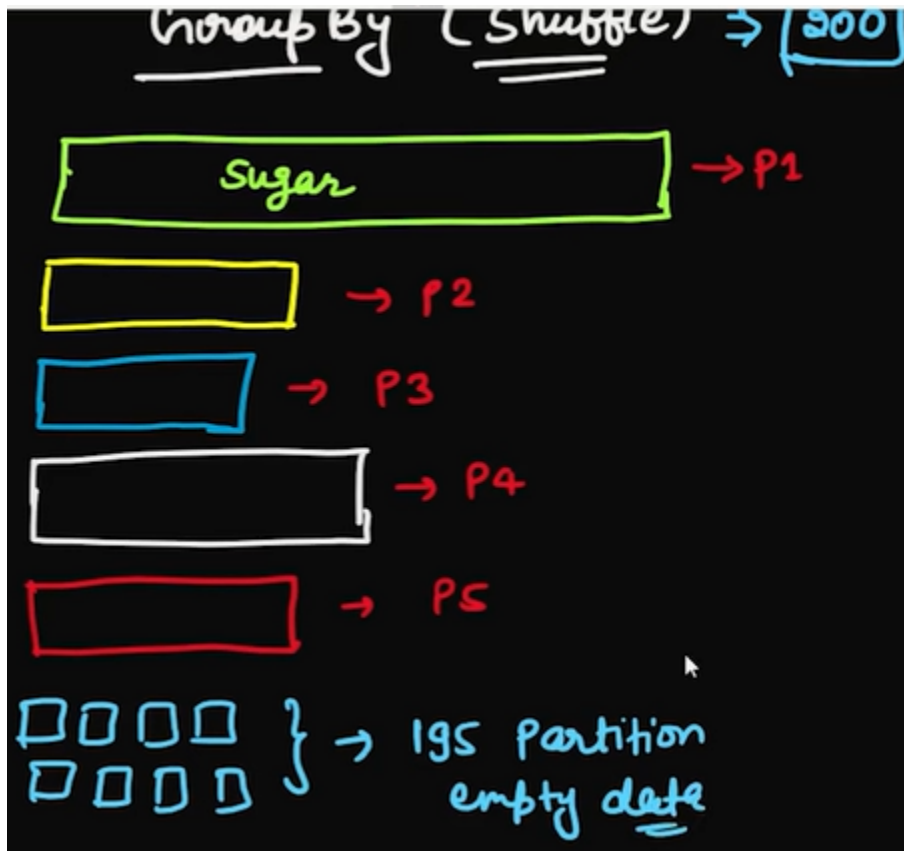 GroupBy (Shuffle) ⇒ 200
Sugar → P1
→ P2
→ P3
→ P4
→ P5
} → 195 Partition
empty data